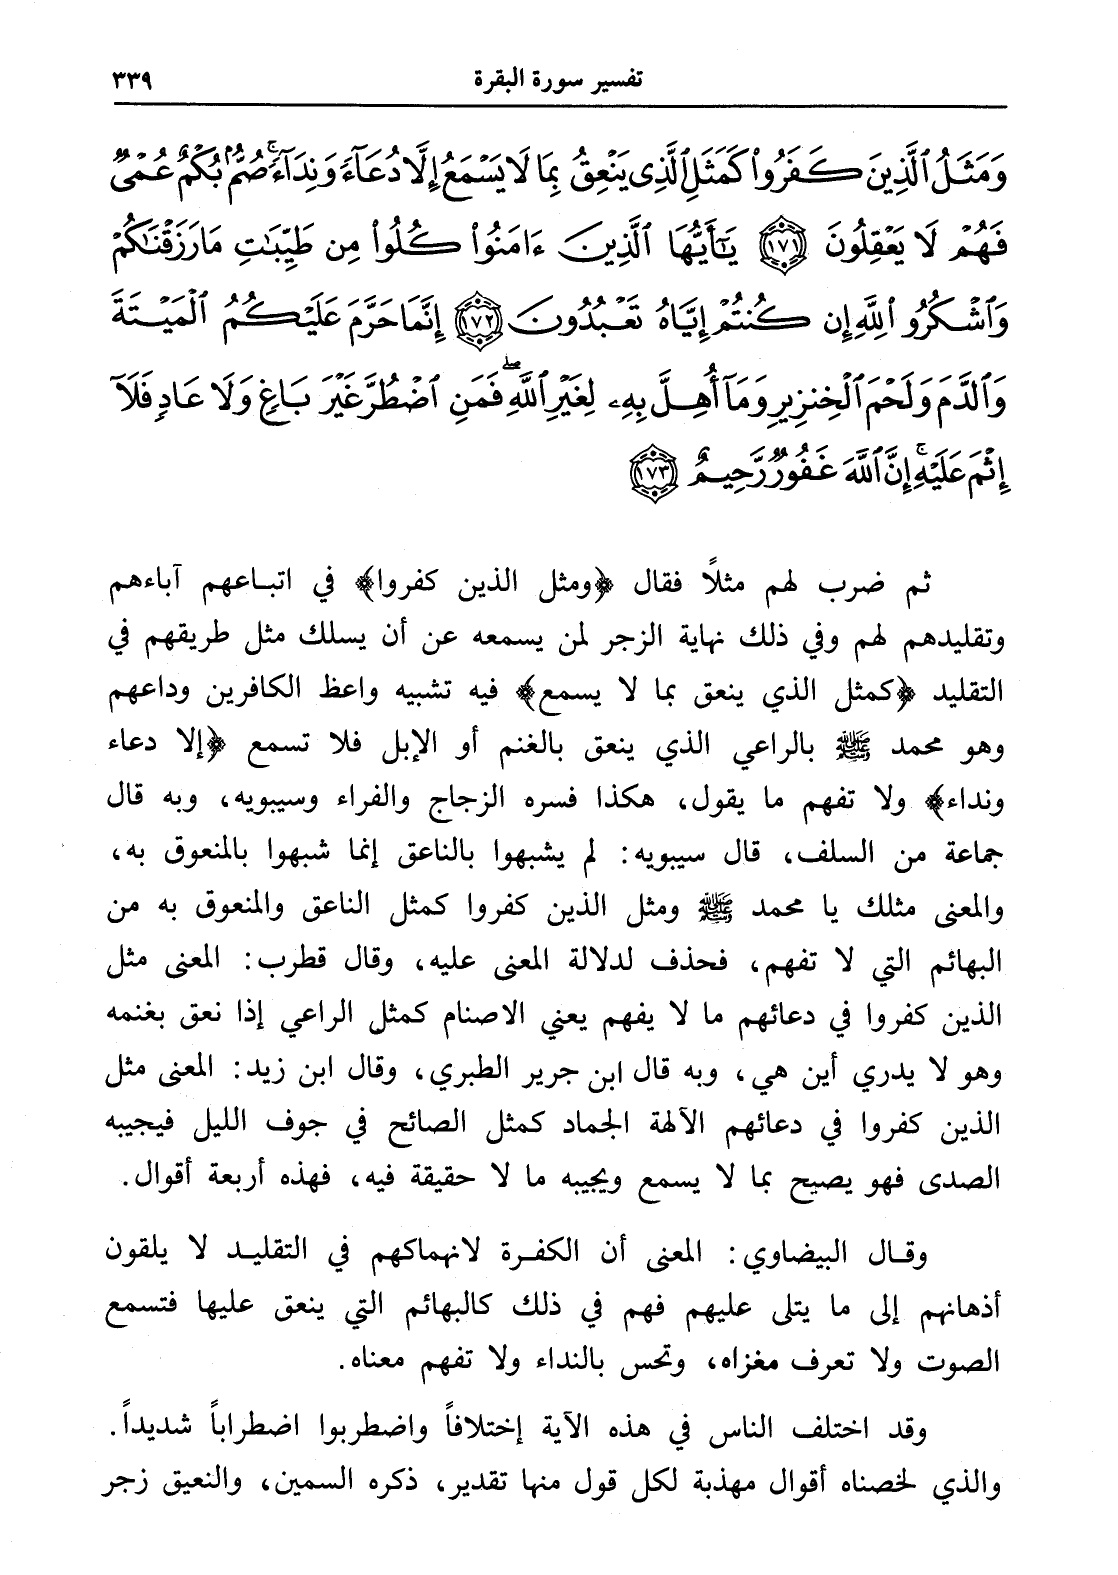 تفسير سورة البقرة ٣٣٩
وَمَثَلُ ٱلَّذِينَ كَفَرُوا۟ كَمَثَلِ ٱلَّذِى يَنْعِقُ بِمَا لَا يَسْمَعُ إِلَّا دُعَآءً وَنِدَآءً ۚ صُمٌّۢ بُكْمٌ عُمْىٌ
فَهُمْ لَا يَعْقِلُونَ ١٧١ يَـٰٓأَيُّهَا ٱلَّذِينَ ءَامَنُوا۟ كُلُوا۟ مِن طَيِّبَـٰتِ مَا رَزَقْنَـٰكُمْ
وَٱشْكُرُوا۟ لِلَّهِ إِن كُنتُمْ إِيَّاهُ تَعْبُدُونَ ١٧٢ إِنَّمَا حَرَّمَ عَلَيْكُمُ ٱلْمَيْتَةَ
وَٱلدَّمَ وَلَحْمَ ٱلْخِنزِيرِ وَمَآ أُهِلَّ بِهِۦ لِغَيْرِ ٱللَّهِ ۖ فَمَنِ ٱضْطُرَّ غَيْرَ بَاغٍ وَلَا عَادٍ فَلَآ
إِثْمَ عَلَيْهِ ۚ إِنَّ ٱللَّهَ غَفُورٌ رَّحِيمٌ ١٧٣
ثم ضرب لهم مثلاً فقال ﴿ومثل الذين كفروا﴾ في اتباعهم آباءهم
وتقليدهم لهم وفي ذلك نهاية الزجر لمن يسمعه عن أن يسلك مثل طريقهم في
التقليد ﴿كمثل الذي ينعق بما لا يسمع﴾ فيه تشبيه واعظ الكافرين وداعهم
وهو محمد ﷺ بالراعي الذي ينعق بالغنم أو الإبل فلا تسمع ﴿إلا دعاء
ونداء﴾ ولا تفهم ما يقول، هكذا فسره الزجاج والفراء وسيبويه، وبه قال
جماعة من السلف، قال سيبويه: لم يشبهوا بالناعق إنما شبهوا بالمنعوق به،
والمعنى مثلك يا محمد ﷺ ومثل الذين كفروا كمثل الناعق والمنعوق به من
البهائم التي لا تفهم، فحذف لدلالة المعنى عليه، وقال قطرب: المعنى مثل
الذين كفروا في دعائهم ما لا يفهم يعني الاصنام كمثل الراعي إذا نعق بغنمه
وهو لا يدري أين هي، وبه قال ابن جرير الطبري، وقال ابن زيد: المعنى مثل
الذين كفروا في دعائهم الآلهة الجماد كمثل الصائح في جوف الليل فيجيبه
الصدى فهو يصيح بما لا يسمع ويجيبه ما لا حقيقة فيه، فهذه أربعة أقوال.
وقال البيضاوي: المعنى أن الكفرة لانهماكهم في التقليد لا يلقون
أذهانهم إلى ما يتلى عليهم فهم في ذلك كالبهائم التي ينعق عليها فتسمع
الصوت ولا تعرف مغزاه، وتحس بالنداء ولا تفهم معناه.
وقد اختلف الناس في هذه الآية إختلافاً واضطربوا اضطراباً شديداً.
والذي لخصناه أقوال مهذبة لكل قول منها تقدير، ذكره السمين، والنعيق زجر